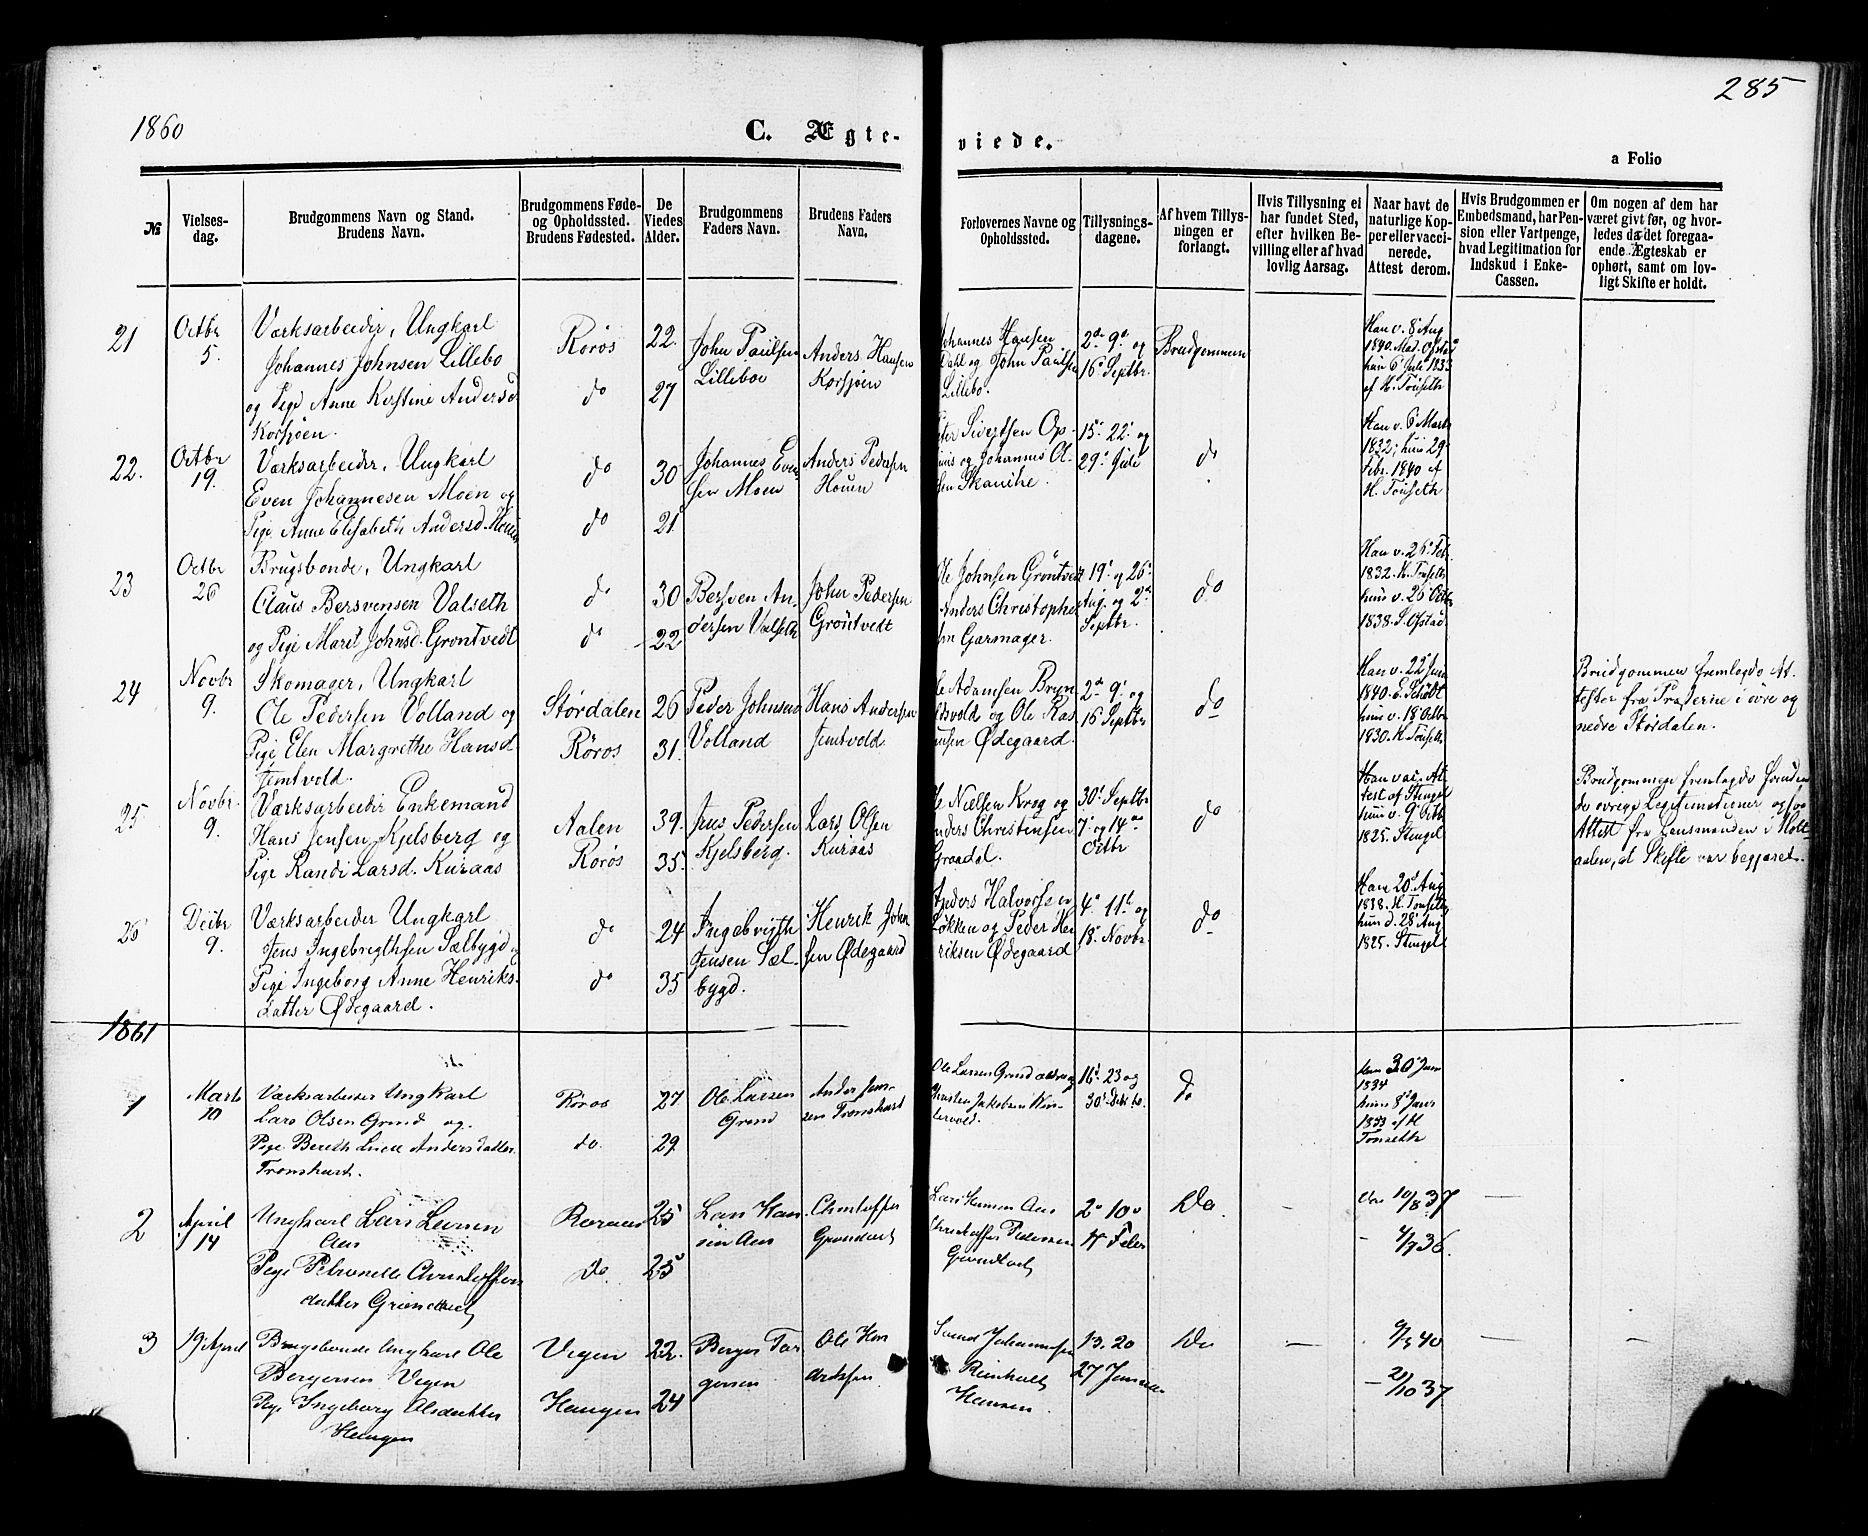 285
1860
C. Ægte-
viede.
a Folio
№
Vielses-
dag.
Brudgommens Navn og Stand.
Brudens Navn.
Brudgommens Føde-
og Opholdssted.
Brudens Fødested.
De
Viedes
Alder.
Brudgommens
Faders Navn.
Brudens Faders
Navn.
Forlovernes Navne og
Opholdssted.
Tillysnings-
dagene.
Af hvem Tillys-
ningen er
forlangt.
Hvis Tillysning ei
har fundet Sted,
efter hvilken Be-
villing eller af hvad
lovlig Aarsag.
Naar havt de
naturlige Kop-
per eller vacci-
nerede.
Attest derom.
Hvis Brudgommen er
Embedsmand, har Pen-
sion eller Vartpenge,
hvad Legitimation for
Indskud i Enke-
Cassen.
Om nogen af dem har
været givt før, og hvor-
ledes da det foregaa-
ende Ægteskab er
ophørt, samt om lov-
ligt Skifte er holdt.
21
Octbr
5.
Værksarbeider, Ungkarl
Johannes Johnsen Lillebo
og Pige Anne Kerstine Andersd.
Korsjøen.
Røros
do
22.
27
John Paulsen
Lilleboe
Anders Hansen
Korsjøen
Johannes Hansen
Dahl og John Paulsen
Lillebo.
2d 9d og
16d Septbr.
Brudgommen
Han v. 8 Aug
1840. Mad. Ofstad
hun 6 Juli 1833
af H. Tønseth
22.
Octbr
19.
Værksarbeider, Ungkarl
Even Johannesen Moen og
Pige Anne Elisabeth Andersd. Houen
do
do
30
21
Johannes Even-
sen Moen
Anders Pedersen
Houen
Sivertsen Op-
og Johannes Ol-
sen Skanche.
15d 22d og
29d Juli
do
Han v. 6 Marts
1832; hun 29
Febr. 1840 af
H. Tønseth
23
Octbr
26
Brugsbonde, Ungkarl
Claus Bersvensen Valseth
og Pige Marit Johnsd. Grøntvedt
do
do
30
22
Bersven An-
dersen Valseth
John Pedersen
Grøntvedt
Ole Johnsen Grøntvedt
Anders Christophe
sen Garmager.
19d og 26d
Aug. og 2d
Septbr.
do
Han v. 26d Feb.
1832. H. Tønseth
hun v. 26 Octbr
1838. S. Ofstad
24
Novbr
9.
Skomager, Ungkarl
Ole Pedersen Volland og
Pige Elen Margrethe Hansd.
Jemtvold.
Størdalen
Røros
26
31.
Peder Johnsen
Volland
Hans Andersen
Jemtvold.
Ole Adamsen Bryn
og Ole Ras
mussen Ødegaard.
2d 9d og
16 Septbr
do
Han v. 22d Juni
1840. E. Schødt
hun v. 18 Octbr
1830. H. Tønseth
Brudgommen fremlagde At-
tester fra Præsterne i øvre og
nedre Størdalen.
25
Novbr.
9.
Værksarbeider Enkemand
Hans Jensen Kjelsberg og
Pige Randi Larsd. Kuraas
Aalen
Røros
39.
35.
Jens Pedersen
Kjelsberg.
Lars Olsen
Kuraas
Ole Nielsen Krog og
Anders Christensen
Graadal.
30d Septbr
7d og 14de
Octbr
do
Han vac. At-
test af Stengel
hun v. 9 Octbr
1825. Stengel
Brudgommen fremlagde foruden
de øvrige Legitimationer ogsaa
Attest fra Lensmanden i Holt-
aalen, at Skifte var begjæret.
26
Decbr
9.
Værksarbeider Ungkarl
Jens Ingebrigthsen Sælbygd og
Pige Ingeborg Anne Henriks-
datter Ødegaard.
do
do
24
35
Ingebrigth
Jensen Sæl-
bygd.
Henrik John
sen Ødegaard
Anders Halvorsen
Løkken og Peder Hen
riksen Ødegaard
4d 11te og
18d Novbr.
do
Han 20d Aug
1838. H. Tønseth
hun d. 28 Aug
1825. Stengel
1861
1
Marts
10
Værksarbeider Ungkarl
Lars Olsen Grind og
Pige Bereth Lucie Andersdatter
Tronshart.
Røros
do
27
29
Ole Larsen
Grind
Anders Jen-
sen Tronshart
Ole Larsen Grind
Christen Jakobsen Vin-
tervold.
16d 23 og
30d Decbr 60.
do
Han 30 Juni
1834
hun 8d Juni
1833 af H
Tønseth
2
April
14
Ungkarl Lars Larsen
Aas
Pige Petronelle Christoffers
datter Grindvet
Roraas
Do
25
25
Lars Han
sen Aas
Christoffer
Grindvet
Lars Hansen Aas
Christoffer Pedersen
Grindvet
2d 10d
17 Febr
Do
10/8 37
4/7 36.
3
19 April
Brugsbonde Ungkarl Ole
Bergersen Vegen
Pige Ingeborg Olsdatter
Haugen
Vegen
Haugen
22.
24
Berger Tor
gersen
Ole Hen
driksen
Svend Johannesen
Reinholt
Hansen
13. 20
27 Januar
Do
9/5 40
2/10 37